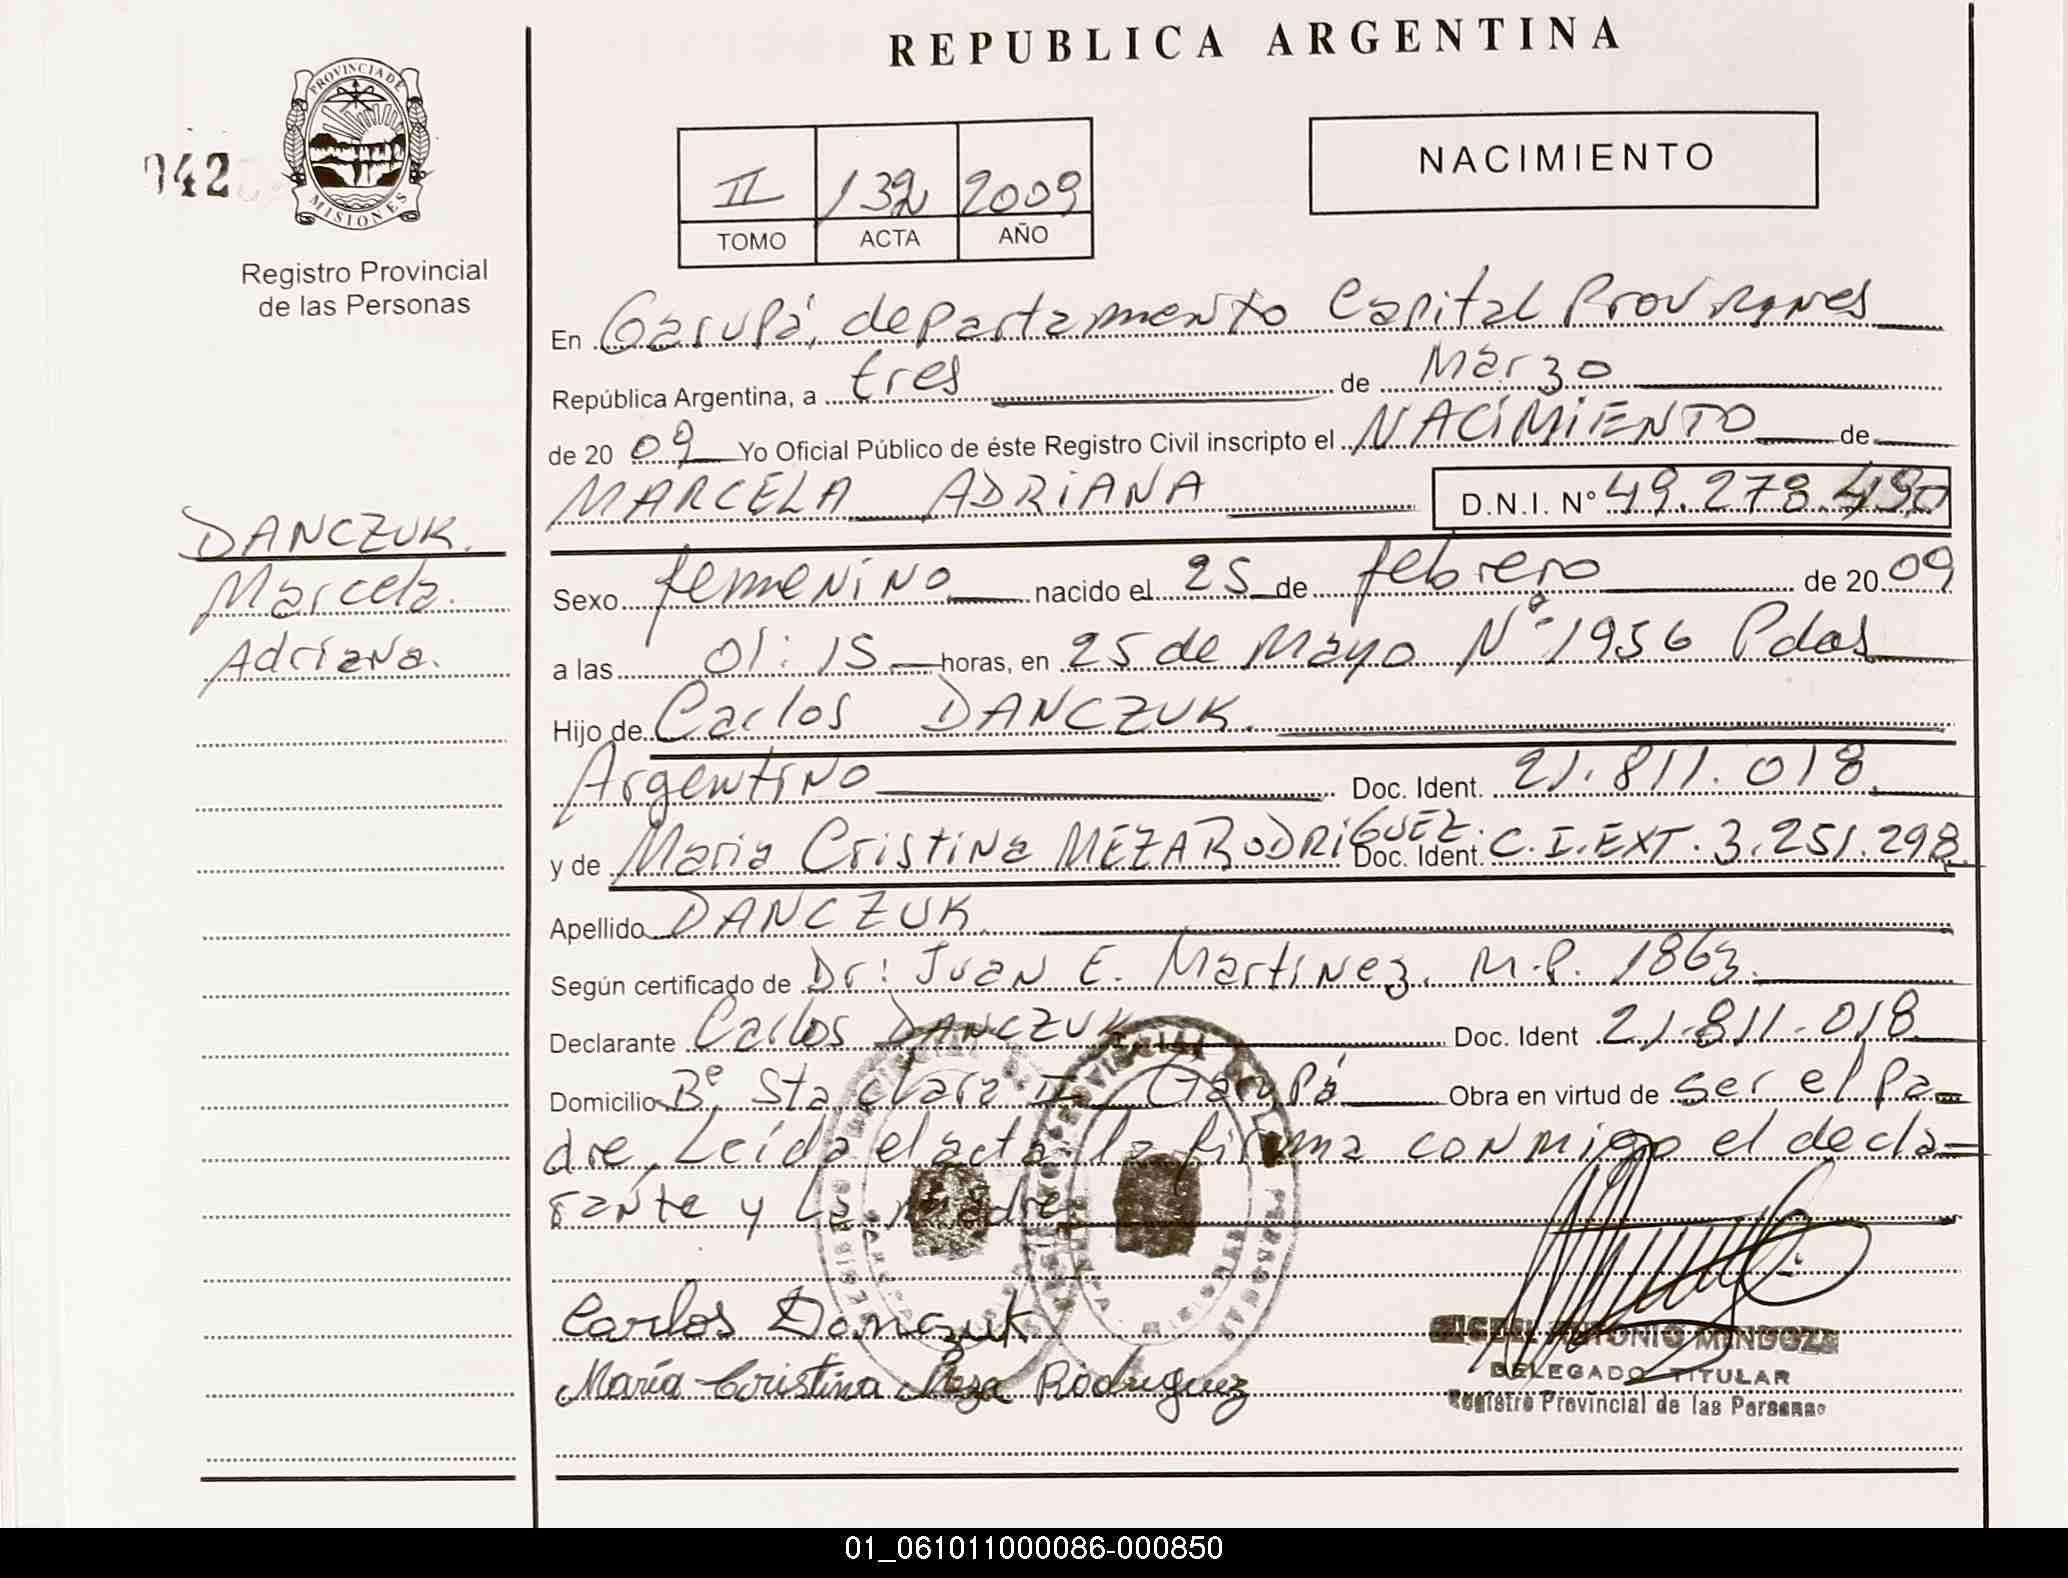 REPUBLICA ARGENTINA
PROVINCIA DE
MISIONES
042
Registro Provincial
de las Personas
II 132 2009
TOMO ACTA AÑO
NACIMIENTO
En Garupá, departamento Capital Prov
República Argentina, a tres de Marzo
de 2009 Yo Oficial Público de éste Registro Civil inscripto el NACIMIENTO de
MARCELA ADRIANA D.N.I. Nº 49.278.490
DANCZUK.
Marcela
Adriana.
Sexo femenino nacido el 25 de febrero de 2009
a las 01:15 horas, en 25 de Mayo Nº 1956 Pdas
Hijo de Carlos DANCZUK.
Argentino Doc. Ident. 21.811.018
y de Maria Cristina MEZA RODRIGUEZ. Doc. Ident. C.I.EXT. 3.251.298
Apellido DANCZUK
Según certificado de Dr: Juan E. Martinez. M.P. 1863.
Declarante Carlos DANCZUK Doc. Ident 21.811.018
Domicilio Bº Sta Clara II Garupá Obra en virtud de ser el pa
dre, Leída el acta, la firma conmigo el decla
rante y la madre
Carlos Danczuk
María Cristina Meza Rodriguez
ANTONIO MENDOZA
DELEGADO TITULAR
Registro Provincial de las Personas
01_061011000086-000850